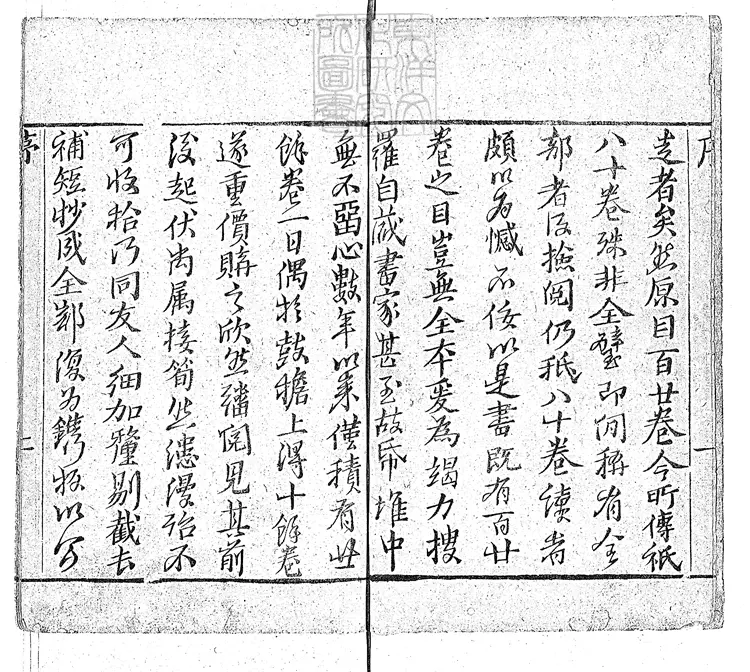 序
一
走者矣然原目百廿卷今所傳祇
八十卷殊非全璧即間稱有全
部者及檢閱仍祇八十卷讀者
頗以為憾不佞以是書既有百廿
卷之目豈無全本爰為竭力搜
羅自藏書家甚至故帋堆中
無不畱心數年以來僅積有廿
餘卷一日偶於鼓擔上得十餘卷
遂重價購之欣然繙閱見其前
後起伏尚属接筍然漶漫殆不
可收拾乃同友人細加釐剔截長
補短抄成全部復為鐫板以公
序